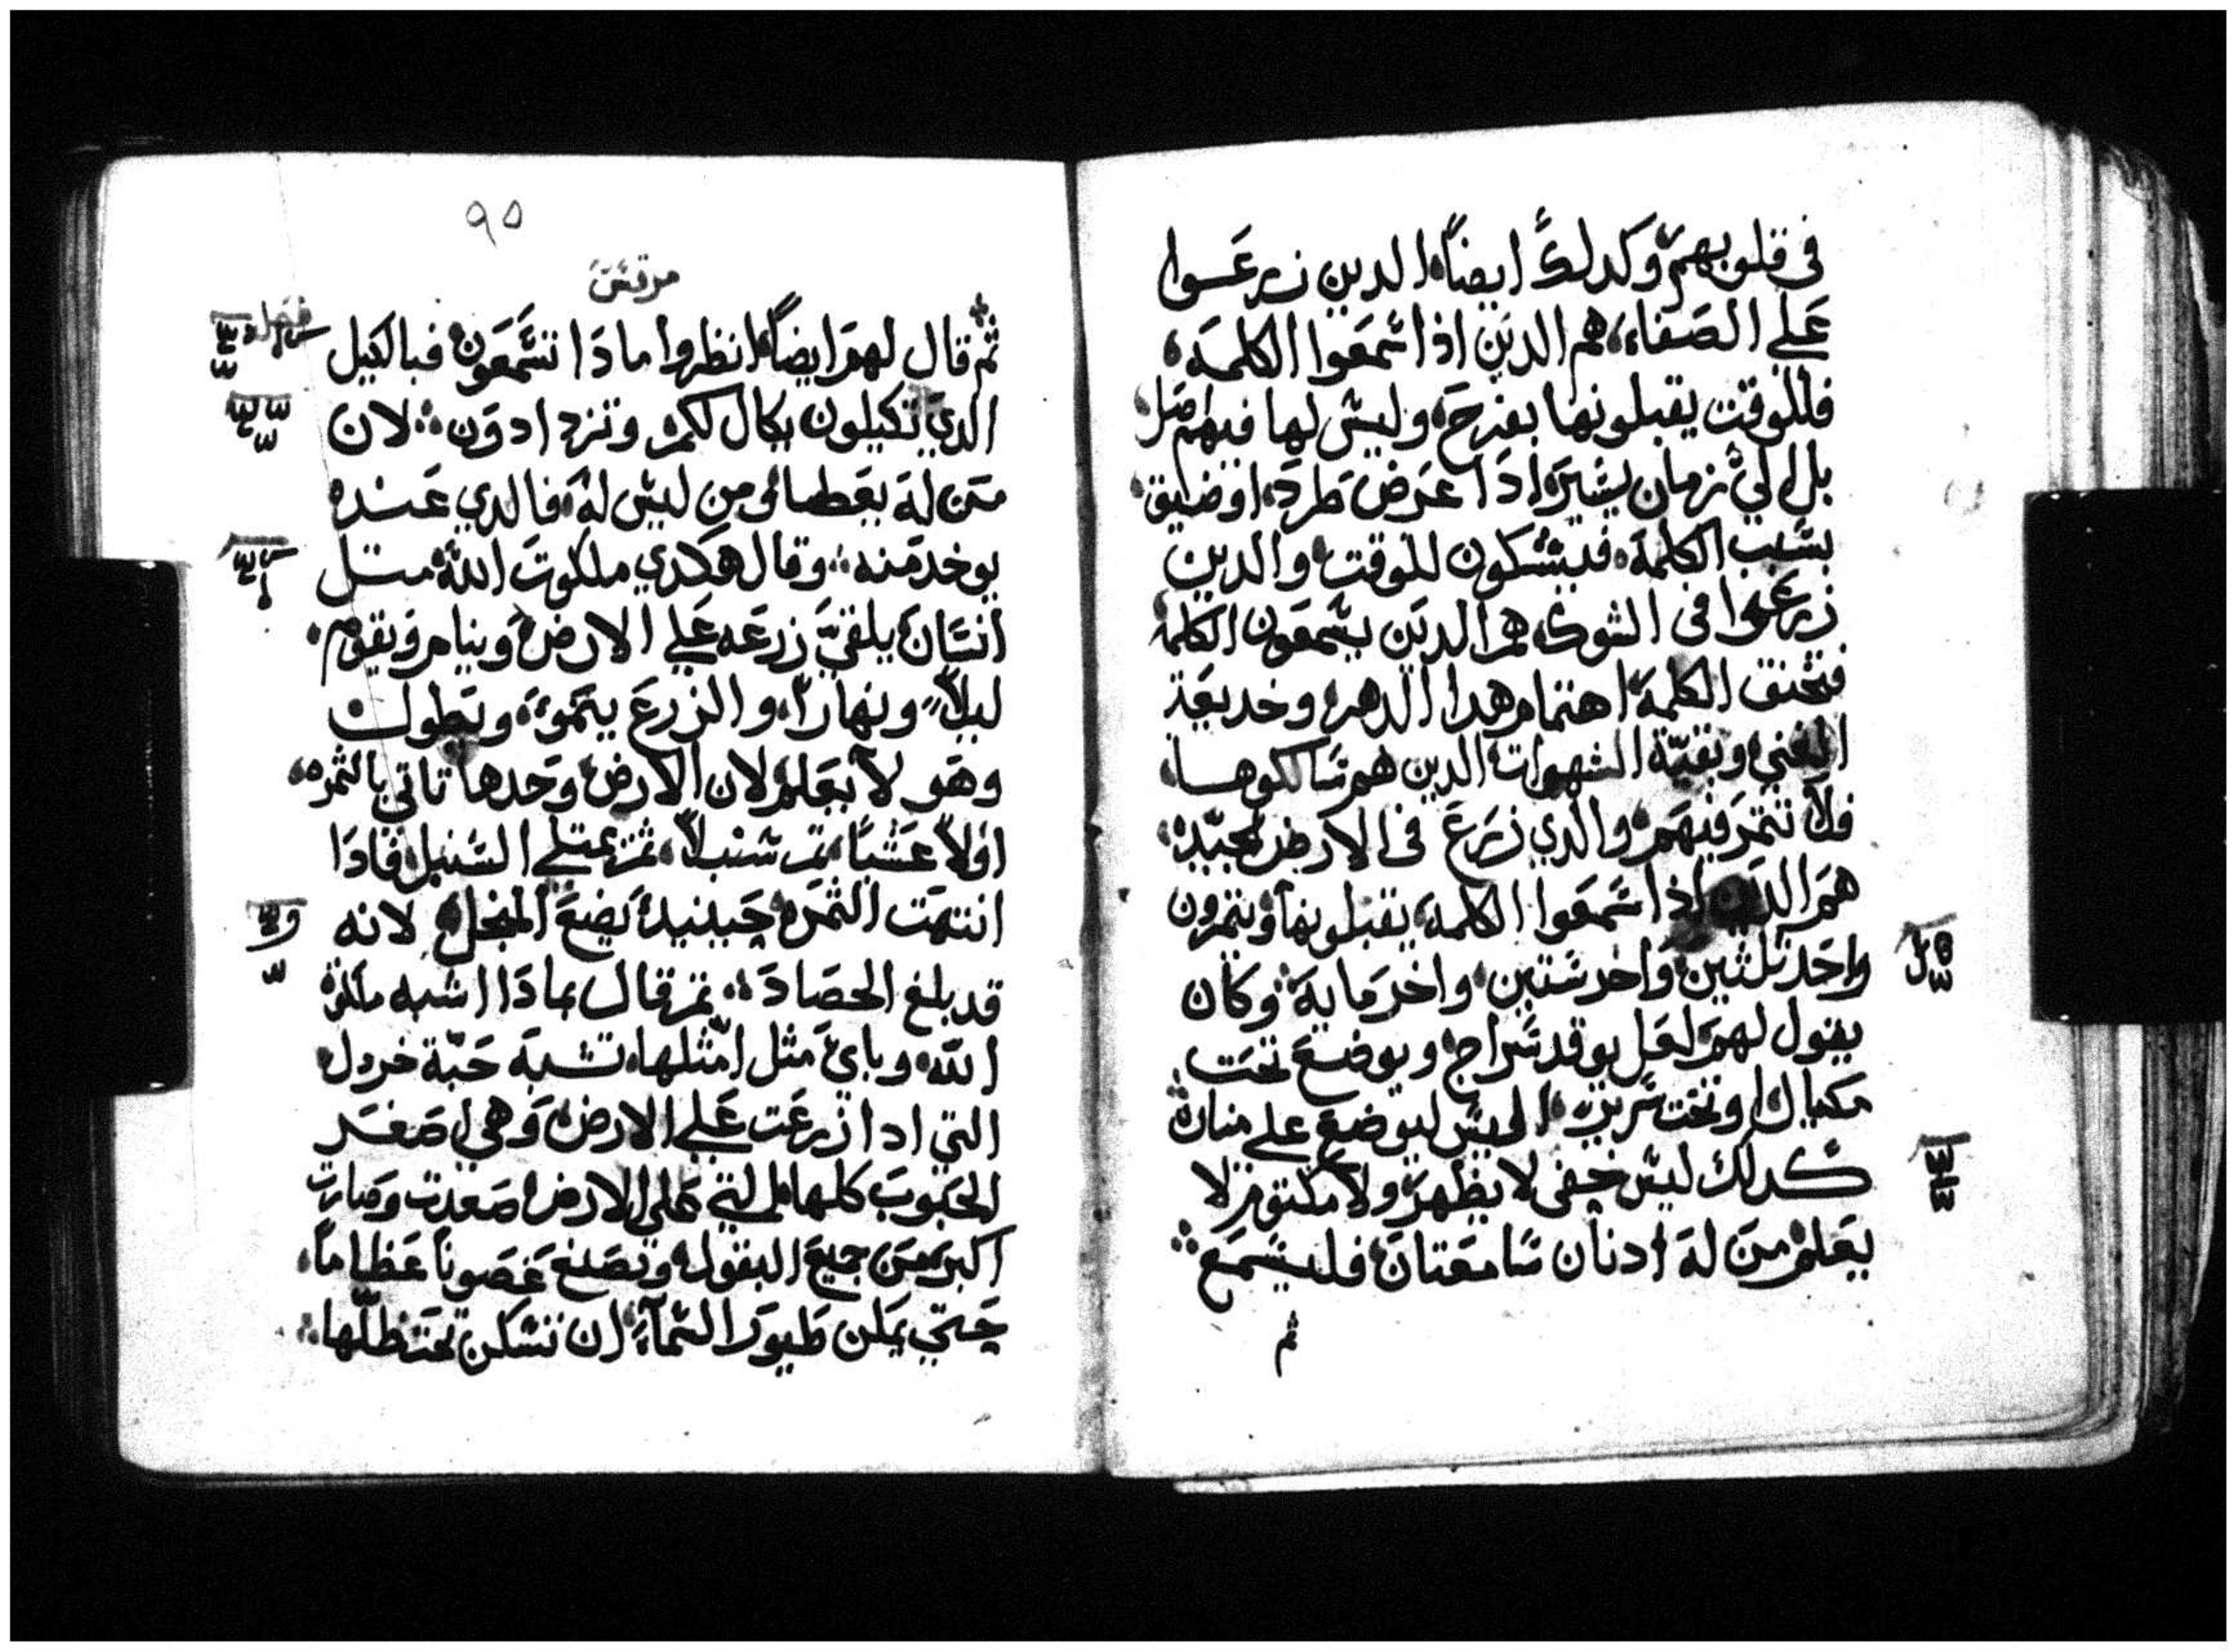 في قلوبهم وكدلك ايضا الدين زرعوا
علي الصفاء هم الدين اذا سمعوا الكلمه
فللوقت يقبلونها بفرح وليس لها فيهم اصل
بل الي زمان يسير ادا عرض طرد او ضيق
بسبب الكلمة فيشكون للوقت والدين
زرعوا في الشوك هم الدين يسمعون الكلمة
فتخنق الكلمة اهتمام هدا الدهر وخديعة
الغني وبقية الشهوات الدين هم سالكوها
فلا تتمر فيهم والدي زرع في الارض الجيده
هم الدين اذا سمعوا الكلمة يقبلونها ويتمرون
واحد تلثين واخر ستين واخر مايه وكان
يقول لهم لعل يوقد سراج ويوضع تحت
مكيال او تحت سرير اليس ليوضع علي منارة
كدلك ليس خفي لا يظهر ولا مكتوم لا
يعلم من له ادنان سامعتان فليسمع
ثم
٩٥
مرقس
ثم قال لهم ايضا انظروا مادا تسمعون فبالكيل
الدي تكيلون يكال لكم وتزدادون لان
من له يعطا ومن ليس له فالدي عنده
يوخد منه وقال هكدي ملكوت الله متل
انسان يلقي زرعه علي الارض وينام ويقوم
ليلا ونهارا والزرع ينمو ويطول
وهو لا يعلم لان الارض وحدها تاتي بالثمره
اولا عشبا تم سنبلا تم يمتلي السنبل فادا
انتهت الثمره حينيد يضع المنجل لانه
قد بلغ الحصاد تم قال بمادا اشبه ملكوة
الله وباي مثل امثلها تشبه حبة خردل
التي ادا زرعت علي الارض وهي اصغر
الحبوب كلها التي علي الارض صعدت وصارت
اكبر من جميع البقول وتصنع غصونا عظاما
حتي يمكن طيور السماء ان تسكن تحت ظلها